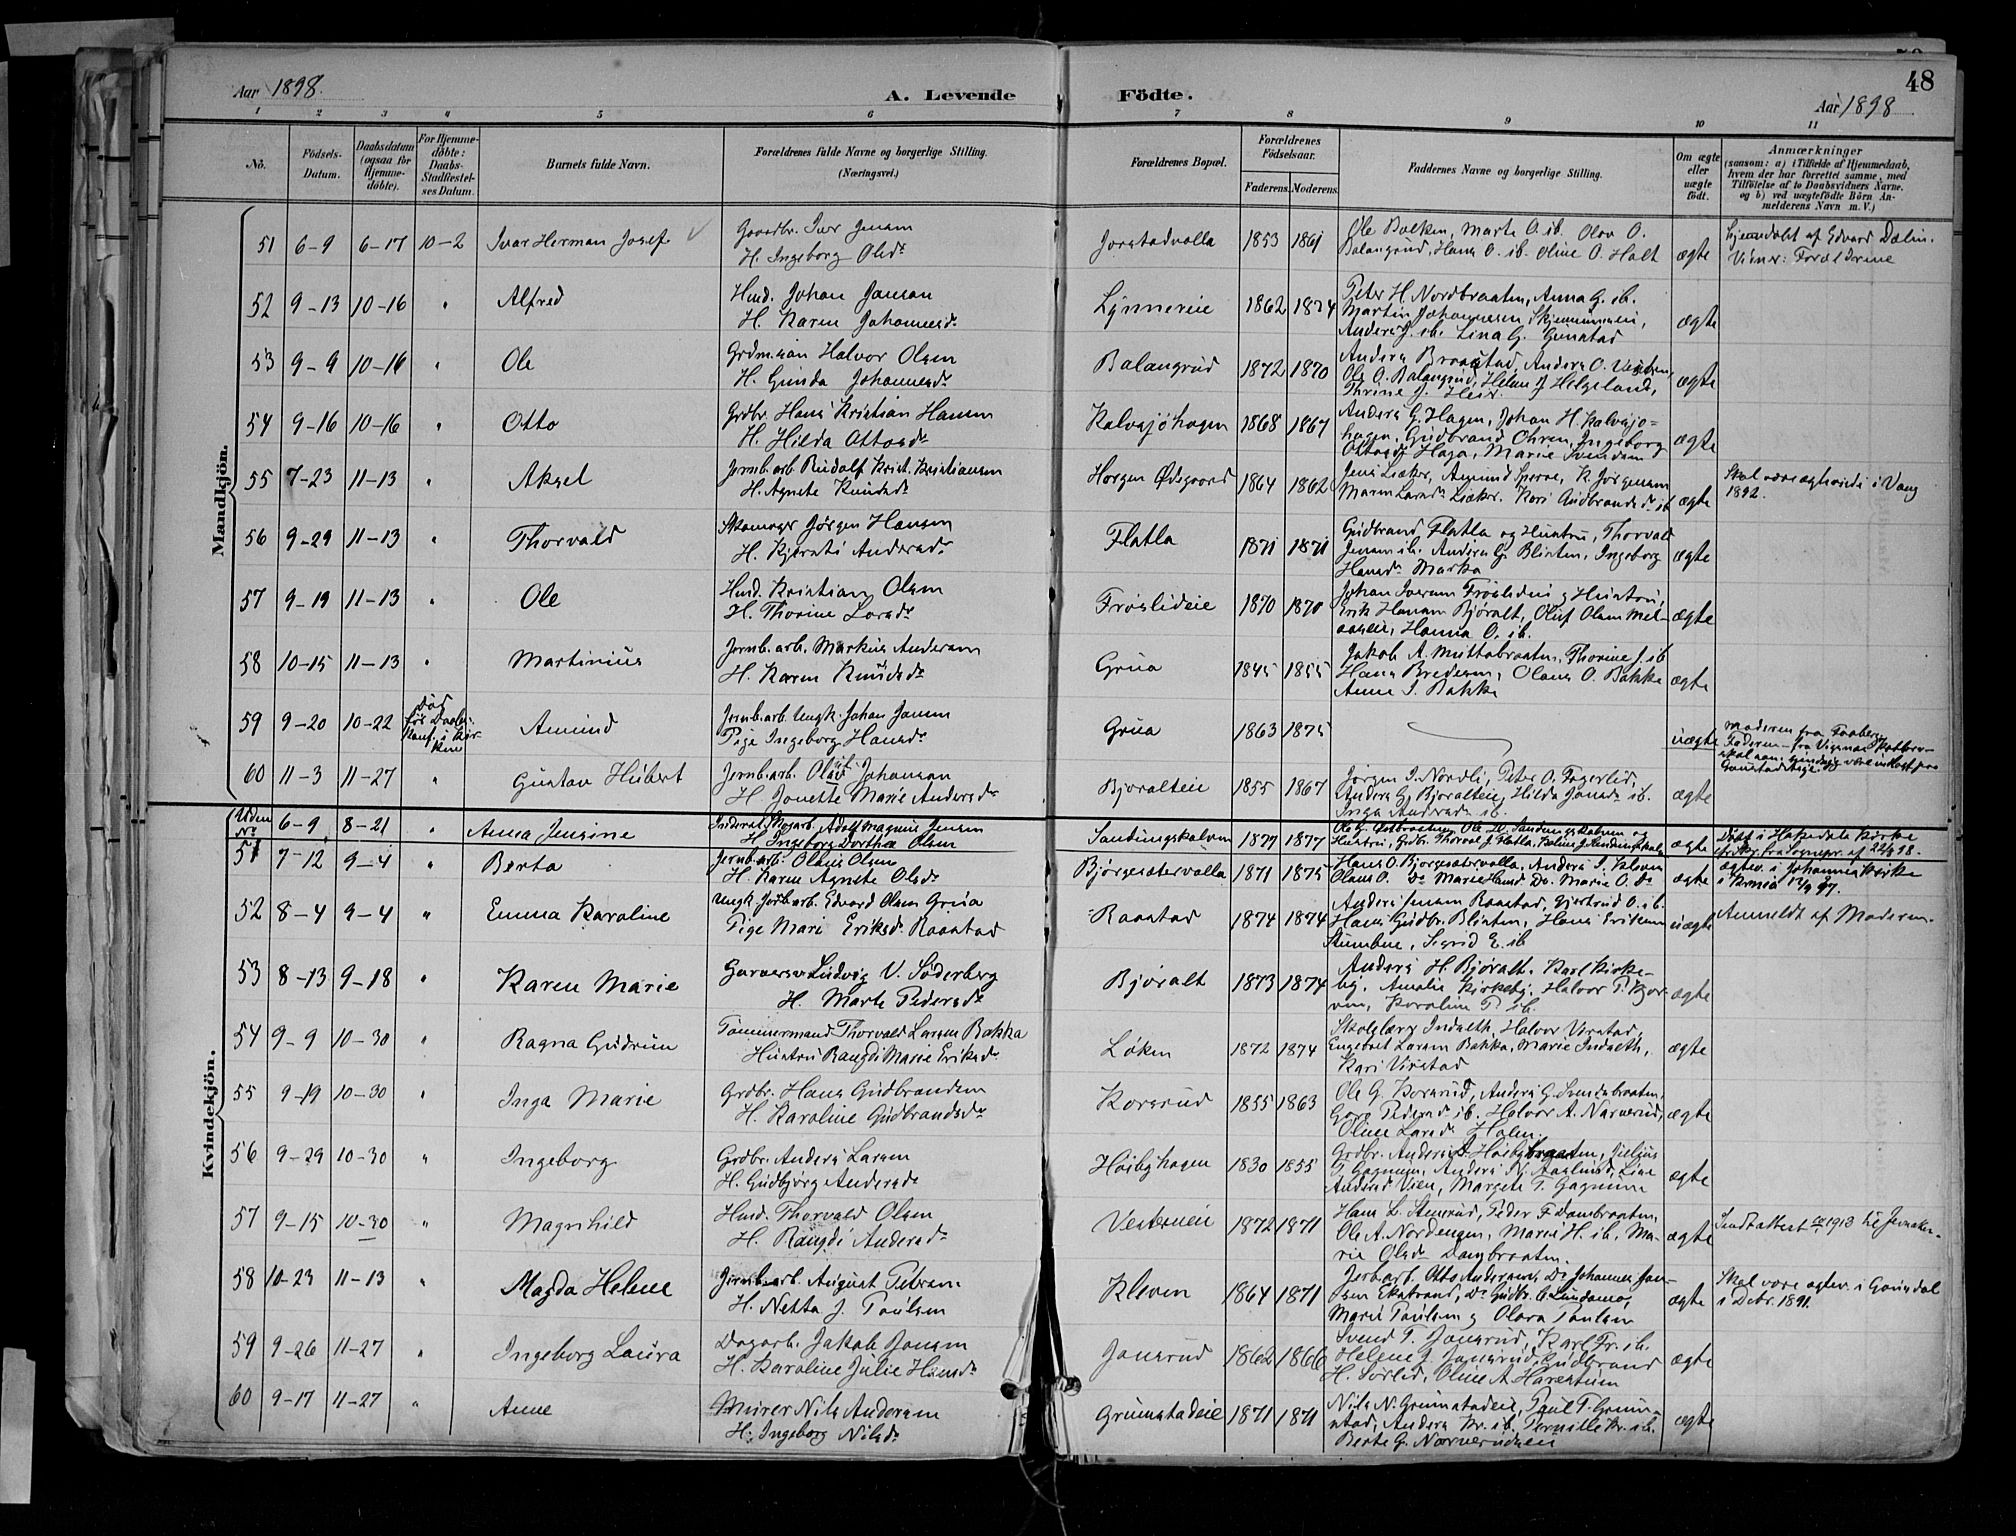 48
Aar 1898. A. Levende Födte. Aar 1898
1 2 3 4 5 6 7 8 9 10 11
No. Födsels-Datum. Daabsdatum (ogsaa for Hjemmedøbte). For Hjemmedøbte: Daabs-Stadfæstelses Datum. Barnets fulde Navn. Forældrenes fulde Navne og borgerlige Stilling. (Næringsvei.) Forældrenes Bopæl. Forældrenes Födselsaar. Faderens. Moderens. Faddernes Navne og borgerlige Stilling. Om ægte eller uægte födt. Anmærkninger (saasom: a) i Tilfælde af Hjemmedaab, hvem der har forrettet samme, med Tilföielse af to Daabsvidners Navne. og b) ved uægtefödte Börn Anmelderens Navn m. V.)
Mandkjön.
51 6-9 6-17 10-2 Ivar Herman Josef Gaardbr. Iver Jensen
H. Ingeborg Olsdr Jorstadvolla 1853 1861 Ole Bolken, Marte O. ib. Olav O.
Balangrud, Hans O. ib. Oline O. Holt ægte Hjemdøbt af Edvard Dælin.
Vidner: Forældrene
52 9-13 10-16 " Alfred Husd. Johan Jansen
H. Karen Johannesdr Lynneeie 1862 1874 Peter H. Nordbraaten, Anna G. ib.
Martin Johannesen
Anders J. ib. Lina G. Grinstad ægte
53 9-9 10-16 " Ole Grdmann Halvor Olsen
H. Gunda Johannesdr Balangrud 1872 1870 Anders Braastad, Anders O.
Ole O. Balangrud, Helene J. Helgeland,
Thrine J. ægte
54 9-16 10-16 " Otto Grdbr. Hans Kristian Hansen
H. Hilda Ottosdr Kalvsjöhagen 1868 1867 Anders G. Hagen, Johan H. Kalvsjö-
hagen, Gudbrand Ohren, Ingeborg
Ottosdr Haga, Marie Svendsen ægte
55 7-23 11-13 " Aksel Jernb.arb. Rudolf Krist. Kristiansen
H. Agnete Knudsdr Horgen Ødegaard 1864 1862 Jens Læker, Amund K. Jörgensen
Maren Larsdr Læker. Kari Gudbrandsdr ib. ægte Skal være ægteviede i Vang
1892.
56 9-29 11-13 " Thorvald Skomager Jørgen Hansen
H. Kjersti Andersdr Flatla 1871 1871 Gudbrand Flatla og Hustru, Thorvald
Jensen ib. Anders G. Blinten, Ingeborg
Hansdr Marka ægte
57 9-19 11-13 " Ole Husd. Kristian Olsen
H. Thorine Larsdr Fröslideie 1870 1870 Johan Iversen Fröslideie og Hustru,
Erik Hansen Björalt, Oluf Olsen Mel-
aaseie, Hanna O. ib. ægte
58 10-15 11-13 " Martinius Jernb.arb. Markus Andersen
H. Karen Knudsdr Grua 1845 1855 Jakob A. Muttabraaten, Thorine J. ib
Hans Bredesen, Olaus O. Bakke
Anne I. Bakke ægte
59 9-20 10-22 død før Daabs-
kunf. i Kir-
ken Amund Jernb.arb. Ungk. Johan Jansen
Pige Ingeborg Hansdr Grua 1863 1875 uægte Moderen fra Faaberg
Faderen fra Vigenæs
60 11-3 11-27 " Gustav Hubert Jernb.arb. Olaf Johansen
H. Jonette Marie Andersdr Björalteie 1855 1867 Jörgen I. Nordli, Peter O. Fagerlid,
Anders G. Björalteie, Hilda Jonsdr ib.
Inga Andersdr ib. ægte
Kvindekjön.
Uden
No 6-9 8-21 " Anna Jensine Inderst, Skogarb. Adolf Magnus Jensen
H. Ingeborg Dorthea Olsen Sandungskalven 1877 1877 ægte Döbt i Hakedals Kirke
51 7-12 9-4 " Berta Jernb.arb. Olaus Olsen
H. Karen Agnete Olsdr Bjørgesætervolla 1871 1875 Hans O. Bjørgesætervolla, Anders I. Kleven
Olaus O. Do Marie Husd. Do. Marie O. do ægte ægtev. i Johannes Kirke
i Krnia 12/9 97.
52 8-4 9-4 " Emma Karoline Ungk. Jernb.arb. Edvard Olsen Grua
Pige Mari Eriksdr Raastad Raastad 1874 1874 Anders Jensen Raastad, Gjertrud O. ib.
Hans Gudbr. Blinten, Hans Eriksen
Stumbne, Sigrid E. ib uægte Anmeldt af Moderen.
53 8-13 9-18 " Karen Marie Garversv. Ludvig V. Söderberg
H. Marte Pedersdr Björalt 1873 1874 Anders H. Björalt. Karl Kirke-
by, Amalie Kirkeby, Halvor P. Kjor-
ven, Karoline P. ib. ægte
54 9-9 10-30 " Ragna Gudrun Tömmermand Thorvald Larsen Bakka
Hustru Rangdi Marie Eriksdr Løken 1872 1874 Skolelærer Indseth, Halvor Virstad,
Engebret Larsen Bakka, Marie Indseth,
Kari Virstad ægte
55 9-19 10-30 " Inga Marie Grdbr. Hans Gudbrandsen
H. Karoline Gudbrandsdr Korsrud 1855 1863 Ole G. Korsrud, Anders G. Svendsbraaten,
Goro Pedersdr ib. Halvor A. Narverud,
Oline Larsdr Holm. ægte
56 9-29 10-30 " Ingeborg Grdbr. Anders Larsen
H. Gudbjörg Andersdr Höibyhagen 1830 1855 Grdbr. Anders Höibybraaten, Julius
T. Gagnum, Anders N. Aaslund, Line
Andersd Vien, Margete T. Gagnum ægte
57 9-15 10-30 " Magnhild Husd. Thorvald Olsen
H. Rangdi Andersdr Vesterneie 1872 1871 Hans L. Stensrud, Peder F. Dambraaten,
Ole A. Nordengen, Marie H. ib. Ma-
rie Olsdr Dambraaten. ægte Sendt attest 1913 til Jevnaker.
58 10-23 11-13 " Magda Helene Jernb.arb. August Petersen
H. Netta J. Paulsen Kleven 1864 1871 Jerb.arb. Otto Andersen, Do Johannes Jan-
sen Ekstrand, Do Gudbr. O. Lundamo,
Marie Paulsen og Olava Paulsen ægte Skal være ægtev. i Gausdal
i Decbr. 1891.
59 9-26 11-27 " Ingeborg Laura Dagarb. Jakob Jonsen
H. Karoline Julie Hansdr Jonsrud 1862 1866 Svend T. Jonsrud, Karl Fr. ib.
Helene J. Jonsrud, Gudbrand
H. Sörlid, Oline A. Harestuen ægte
60 9-17 11-27 " Anne Murer Nils Andersen
H. Ingeborg Nilsdr Grumstadeie 1871 1871 Nils N. Grumstadeie, Paul T. Grum-
stad, Anders Kr. ib. Pernille Kr. ib.
Berte G. Narverudeie ægte